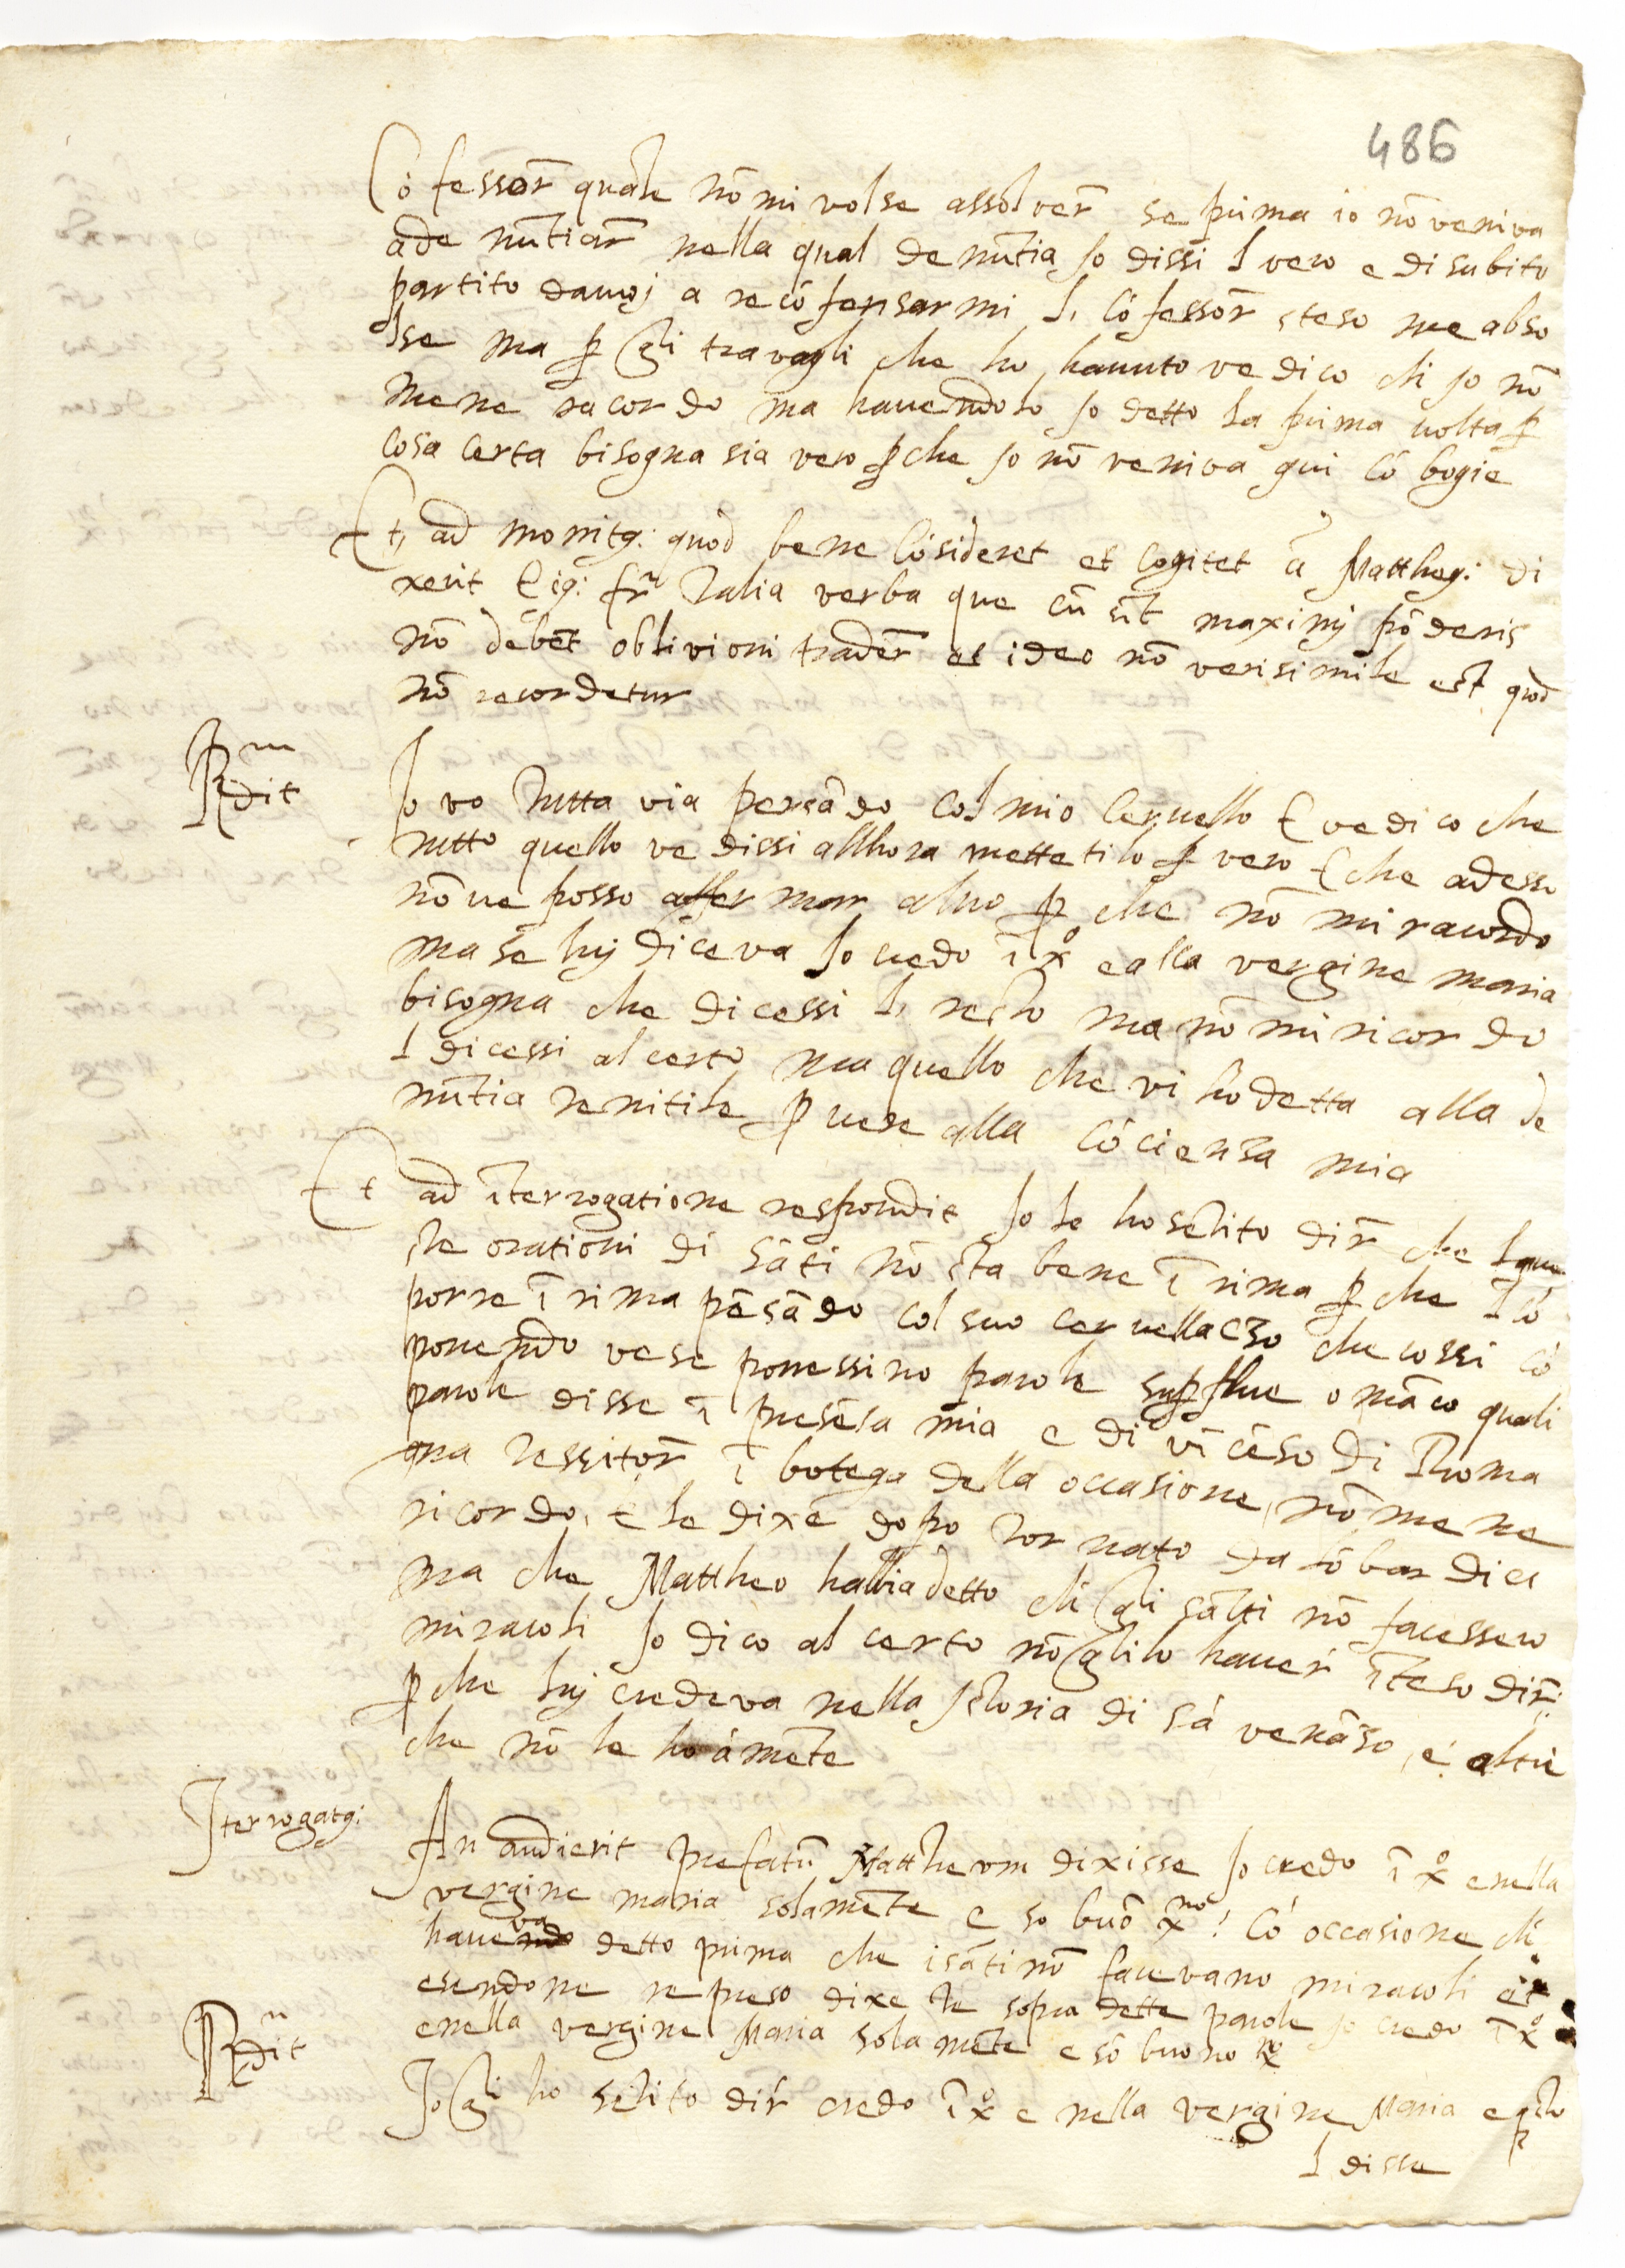 486
Cō fessōr quale nō mi volse assolver̄ se prima io nō veniva
ade nūtiar̄ nella qual denūtia Io dissi l vero e di subito
partito dauoj a recō fensar mi l, Cō fessōr steso me abso
lse ma ꝑ gli travagli che ho hauuto ve dico ch̄i io nō
mene racordo ma hauendolo Io detto la prima uolta ꝑ
cosa certa bisogna sia vero ꝑche Io nō veniva qui cō bogie
Et, ad monitꝯ: quod bene Cōsideret et Cogitet ā Matthęꝯ: di
xerit Eiꝯ: fr̄i Talia verba que cū sīt maximj pōderis
nō debēt oblivioni trader̄ et ideo nō verisimile est quod
nō recordetur
Rn̄dit
Io vo Tutta via pensādo col mio Ceruello E ve dico che
tutto quello ve dissi allhora mettetilo ꝑ vero E che adesso
nō ue posso affermar altro ꝑ che nō mi racordo
ma se luj diceva Io credo ī xº e alla vergine maria
bisogna che dicessi l, resto ma nō mi ricordo
l dicessi al certo ma quello che vi ho detta alla de
nūtia tenitile ꝑ uere alla Cōcienza mia
Et ad īterrogatione respondit Io le ho sētito dir̄ che l que
ste orationi di sāti nō sta bene ī rima ꝑ che l cō
porre ī rima pēsādo col suo ceruellaczo che cossi cō
ponendo ve se ponessino parole suꝑflue o māco quali
parole disse ī presēsa mia e di vīcēso di Roma
gna Tessitōr ī botega della occasione nō me ne
ricordo, E le dixe dopo Tornato da lōbardia
ma che Mattheo habbia detto ch̄i gli sāti nō facessero
miracoli Io dico al certo nō glilo hauer īteso dir̄:
ꝑche luj credeva nella Istoria di sā venāso, e altri
che nō le ho ā mēte
Iterrogatꝯ:
An audierit prefatū Mattheum dixisse Io credo ī xº e nella
vergine maria solamēte e so buō xno! Cō occasione ch̄i
haueva detto prima che i sāti nō facevano miracoli et
esendone represo dixe le sopra dette parole Io credo ī xº
e nella vergine Maria solamēte e sō buono xº
Rn̄dit
Io gli ho sētito dir̄ credo ī xº e nella vergine Maria e qsto
l disse